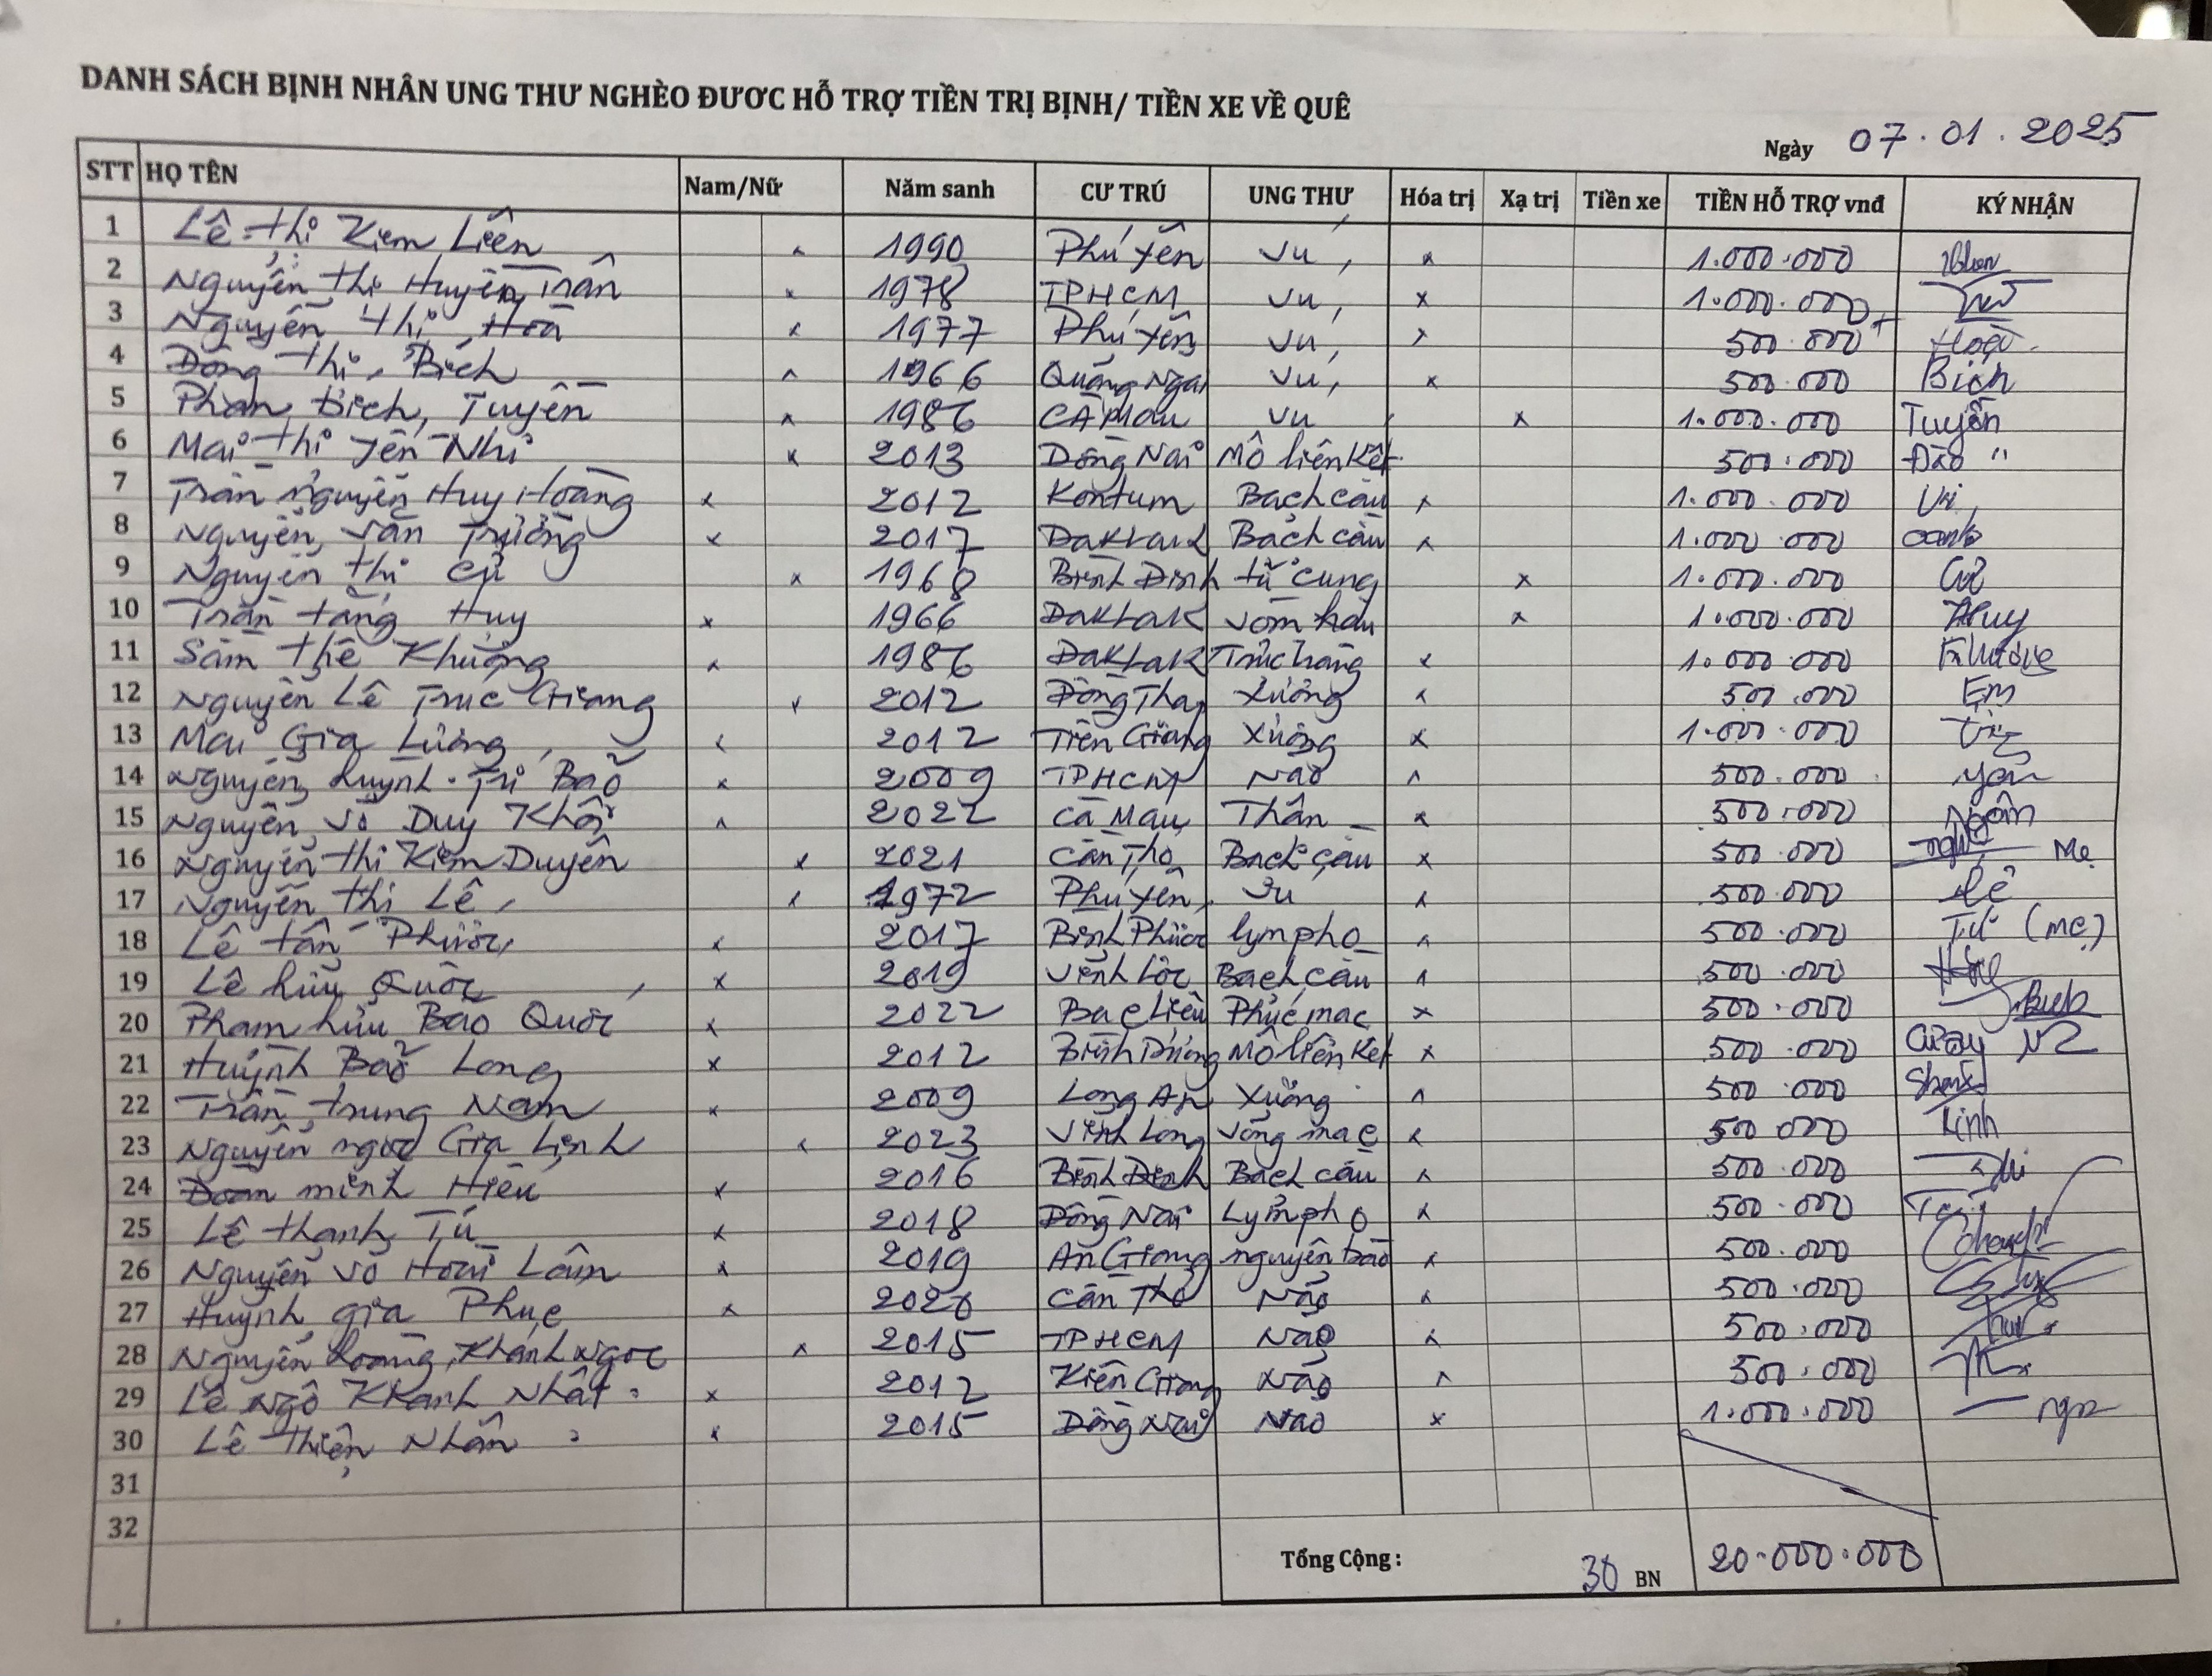 DANH SÁCH BỊNH NHÂN UNG THƯ NGHÈO ĐƯƠC HỖ TRỢ TIỀN TRỊ BỊNH/ TIỀN XE VỀ QUÊ
Ngày 07.01.2025
STT HỌ TÊN Nam/Nữ Năm sanh CƯ TRÚ UNG THƯ Hóa trị Xạ trị Tiền xe TIỀN HỖ TRỢ vnđ KÝ NHẬN
1 Lê thị Kim Liên x 1990 Phú Yên Vú x 1.000.000
2 Nguyễn thị Huyền Trân x 1978 TPHCM Vú x 1.000.000
3 Nguyễn thị Hoà x 1977 Phú Yên Vú x 500.000
4 Đồng thị Bích x 1966 Quảng Ngai Vú x 500.000 Bích
5 Phan Bích Tuyền x 1986 CÀ Mau Vu x 1.000.000 Tuyền
6 Mai thị Yến Nhi x 2013 Đồng Nai Mô liên Kết 500.000 Đào "
7 Trần nguyễn Huy Hoàng x 2012 Kontum Bạch cầu x 1.000.000 Vi
8 Nguyễn Văn Trường x 2017 DakLak Bạch cầu x 1.000.000 oanh
9 Nguyễn thị Cự x 1968 Bình Định tử cung x 1.000.000
10 Trần tăng Huy x 1966 DakLak vòm hầu x 1.000.000 Huy
11 Sầm thế Khương x 1986 DakLak Trực tràng x 1.000.000
12 Nguyễn Lê Truc Giang x 2012 Đồng Thap Xương x 500.000 Em
13 Mai Gia Lương x 2012 Tiền Giang Xương x 1.000.000
14 Nguyễn huỳnh Trí Bảo x 2009 TPHCM Não x 500.000
15 Nguyễn Võ Duy Khôi x 2022 Cà Mau Thận x 500.000
16 Nguyễn thị Kim Duyên x 2021 Cần Thơ Bạch cầu x 500.000 Mẹ
17 Nguyễn thị Lê x 1972 Phú Yên Vu x 500.000 Lê
18 Lê tấn Phước x 2017 Bình Phước lympho x 500.000 Tú (mẹ)
19 Lê hữu Quốc x 2019 Vĩnh Lộc Bạch cầu x 500.000
20 Phạm hữu Bảo Quốc x 2022 Bạc Liêu Phúc mạc x 500.000
21 Huỳnh Bảo Long x 2012 Bình Dương Mô liên Kết x 500.000
22 Trần trung Nam x 2009 Long An Xương x 500.000
23 Nguyễn ngọc Gia Linh x 2023 Vĩnh Long Võng mạc x 500.000 Linh
24 Đoàn minh Hiếu x 2016 Bình Định Bạch cầu x 500.000
25 Lê thanh Tú x 2018 Đồng Nai Lympho x 500.000
26 Nguyễn Võ Hoài Lâm x 2019 An Giang nguyên bào x 500.000
27 Huỳnh gia Phuc x 2020 Cần Thơ Não x 500.000
28 Nguyễn hoàng Khánh Ngọc x 2015 TPHCM Não x 500.000
29 Lê Ngô Khanh Nhật x 2012 Kiên Giang Não x 500.000
30 Lê Thiện Nhân x 2015 Đồng Nai Não x 1.000.000
31
32
Tổng Cộng : 30 BN 20.000.000